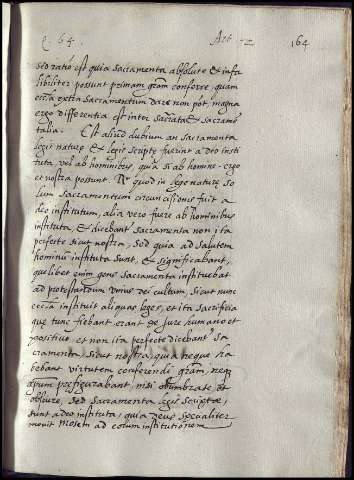 Q 64. Art. 2 164
sed ratio est quia sacramenta absolute & infa
libiliter possunt primam gram conferre, quam
extra sacramentum dare non pot, magna
ergo differentia est inter
talia. Est aliud dubium an sacramenta
legis naturę & legis scriptę fuerint a deo insti
tuta vel ab hominibus, quia si ab homine ergo
et nostra possunt. Rr quod in lege naturę so
lum sacramentum circuncisionis fuit a
deo institutum, alia vero fuere ab hominibus
instituta, & dicebant sacramenta non ita
perfecte sicut nostra, sed quia ad salutem
hominū instituta sunt, & significabant,
quelibet enim gens sacramenta instituebat
ad protestandum unius dei cultum, sicut nunc
instituit aliquas leges, et ita sacrificia
que tunc fiebant erant de jure humano et
positivo, et non ita perfecte dicebant sa
cramenta, sicut nostra, quia neque ha
bebant virtutem conferendi gram, neq
prefigurabant, nisi obumbrate et
obscure, sed sacramenta legis scriptae,
sunt a deo instituta, quia deus specialiter
movit Mosem ad eorum institutionem